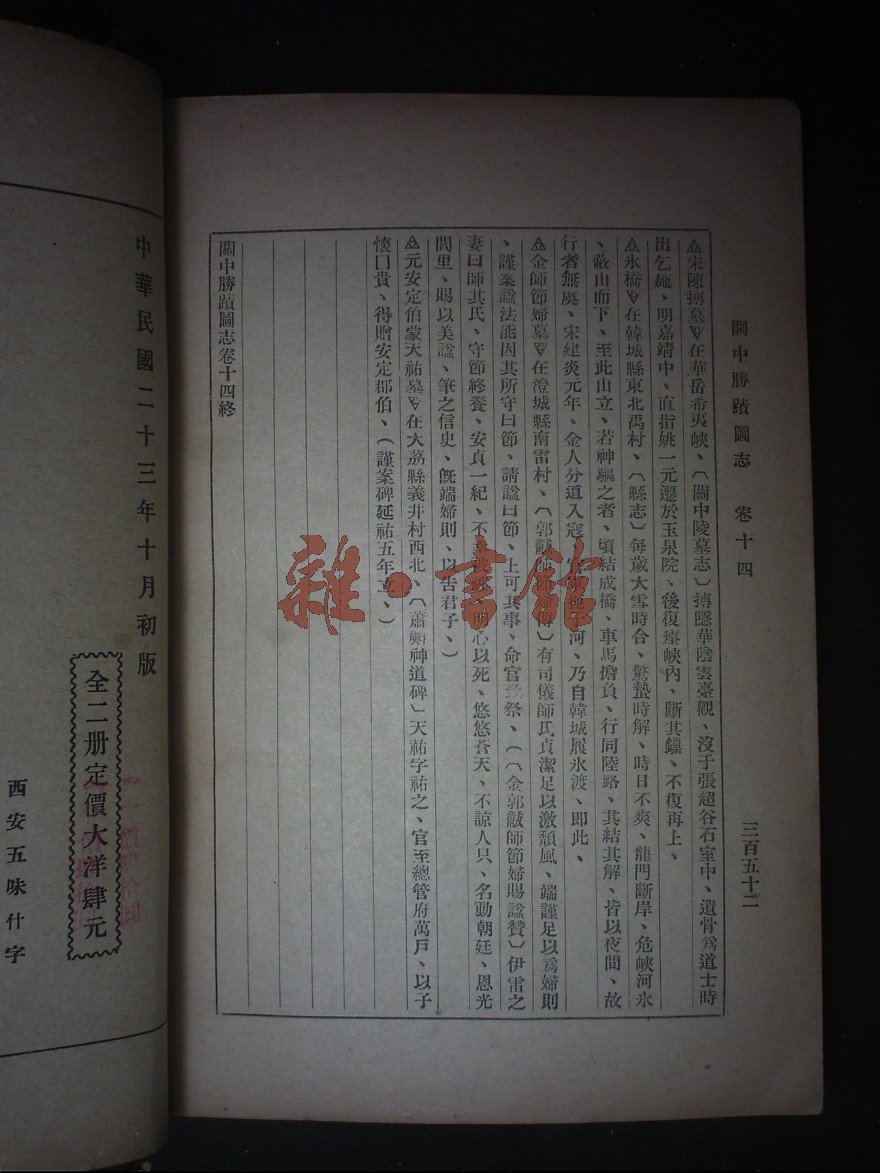 關中勝蹟圖志 卷十四 三百五十二
◬宋陳摶墓▽在華岳希夷峽、〔關中陵墓志〕摶隱華陰雲臺觀、沒于張超谷石室中、遺骨爲道士時
出乞施、明嘉靖中、直指姚一元遷於玉泉院、後復瘞峽內、斷其鏁、不復再上、
◬氷橋▽在韓城縣東北禹村、〔縣志〕每歲大雪時合、驚蟄時解、時日不爽、龍門斷岸、危峽河氷
、蔽山而下、至此山立、若神驅之者、頃結成橋、車馬擔負、行同陸路、其結其解、皆以夜間、故
行者無虞、宋建炎元年、金人分道入寇、河、乃自韓城履氷渡、即此、
◬金師節婦墓▽在澄城縣南雷村、〔郭黻師 〕有司儀師氏貞潔足以激頹風、端謹足以爲婦則
、謹案諡法能因其所守曰節、請諡曰節、上可其事、命官 祭、（〔金郭黻師節婦賜諡贊〕伊雷之
妻曰師其氏、守節終養、安貞一紀、不 心以死、悠悠蒼天、不諒人只、名動朝廷、恩光
閭里、賜以美諡、筆之信史、旣端婦則、以告君子、）
◬元安定伯蒙天祐墓▽在大荔縣義井村西北、〔蕭㪺神道碑〕天祐字祐之、官至總管府萬戸、以子
懷口貴、得贈安定郡伯、（謹案碑延祐五年立、）
關中勝蹟圖志卷十四終
中華民國二十三年十月初版
全二册定價大洋肆元
西安五味什字
雜·書館